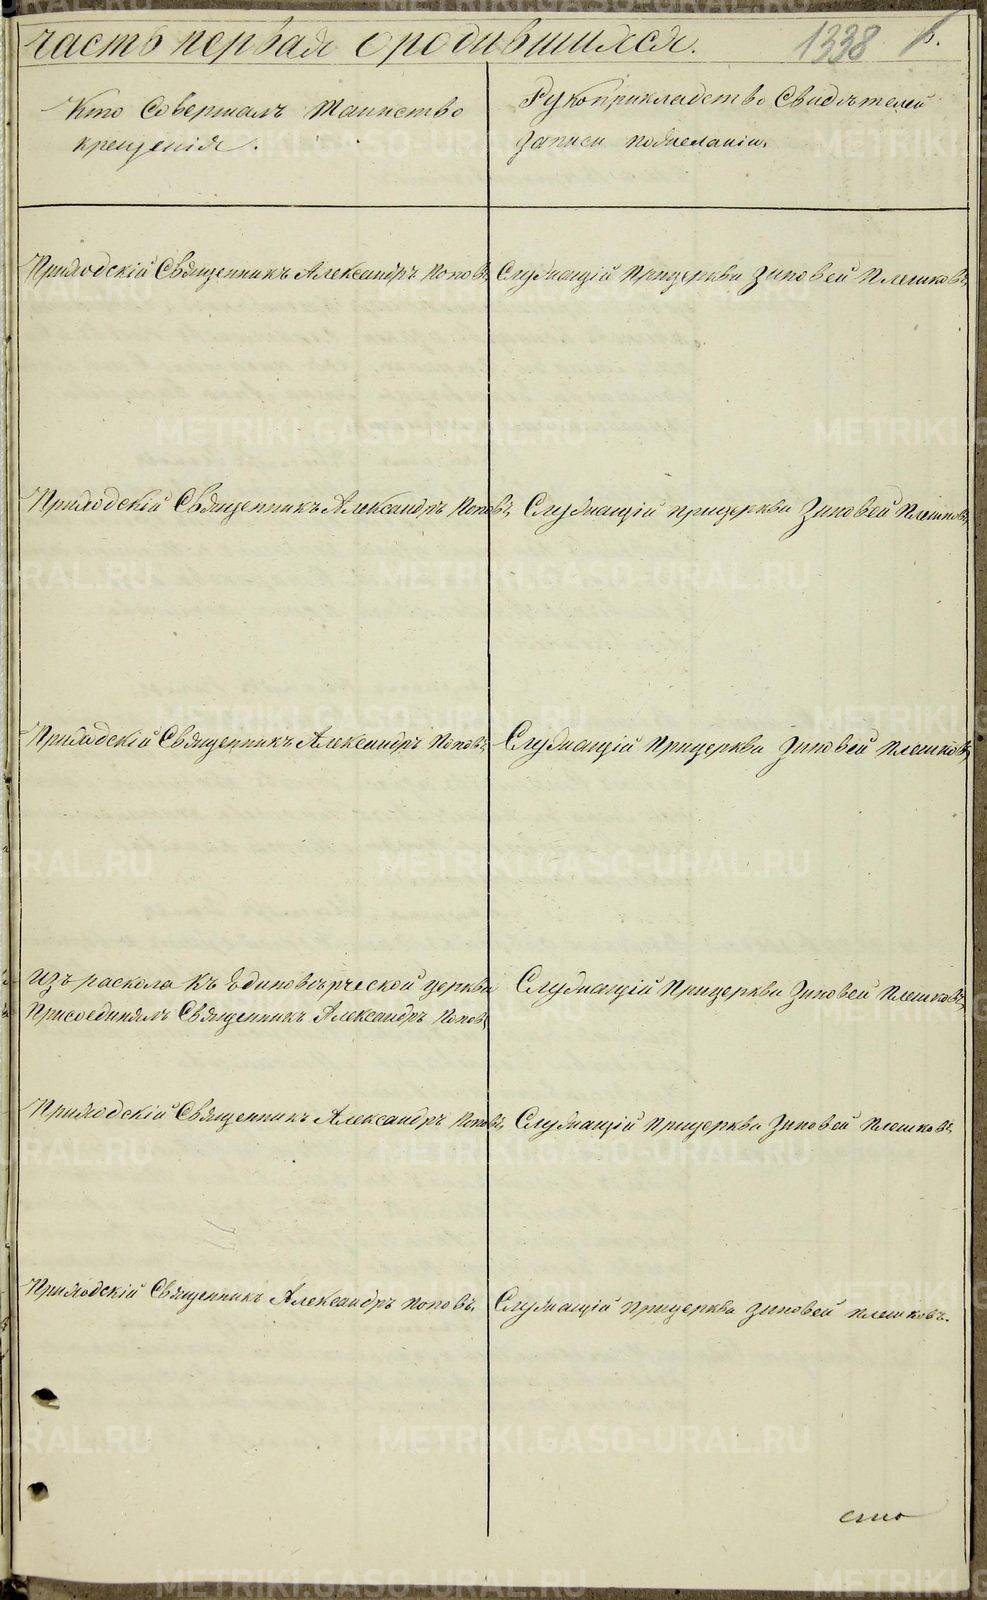 часть первая о родившихся. 1338 6.
Кто Совершалъ Таинство
крещенія.
Рукоприкладство Свидѣтелей
записи пожеланію.
Приходскій Священникъ Александръ Поповъ, Служащій Прицеркви Зиновей Плешковъ,
Приходскій Священникъ Александръ Поповъ, Служащій прицеркви Зиновей Плешковъ,
Приходскій Священникъ Александръ Поповъ, Служащій Прицеркви Зиновей Плешковъ,
Изъ раскола къ Единовѣрческой церкви
Присоединялъ Священникъ Александръ Поповъ,
Служащій Прицеркви Зиновей Плешковъ,
Приходскій Священникъ Александръ Поповъ, Служащій Прицеркви Зиновей Плешковъ,
Приходскій Священникъ Александръ Поповъ. Служащій Прицеркви Зиновей Плешковъ.
METRIKI.GASO-URAL.RU